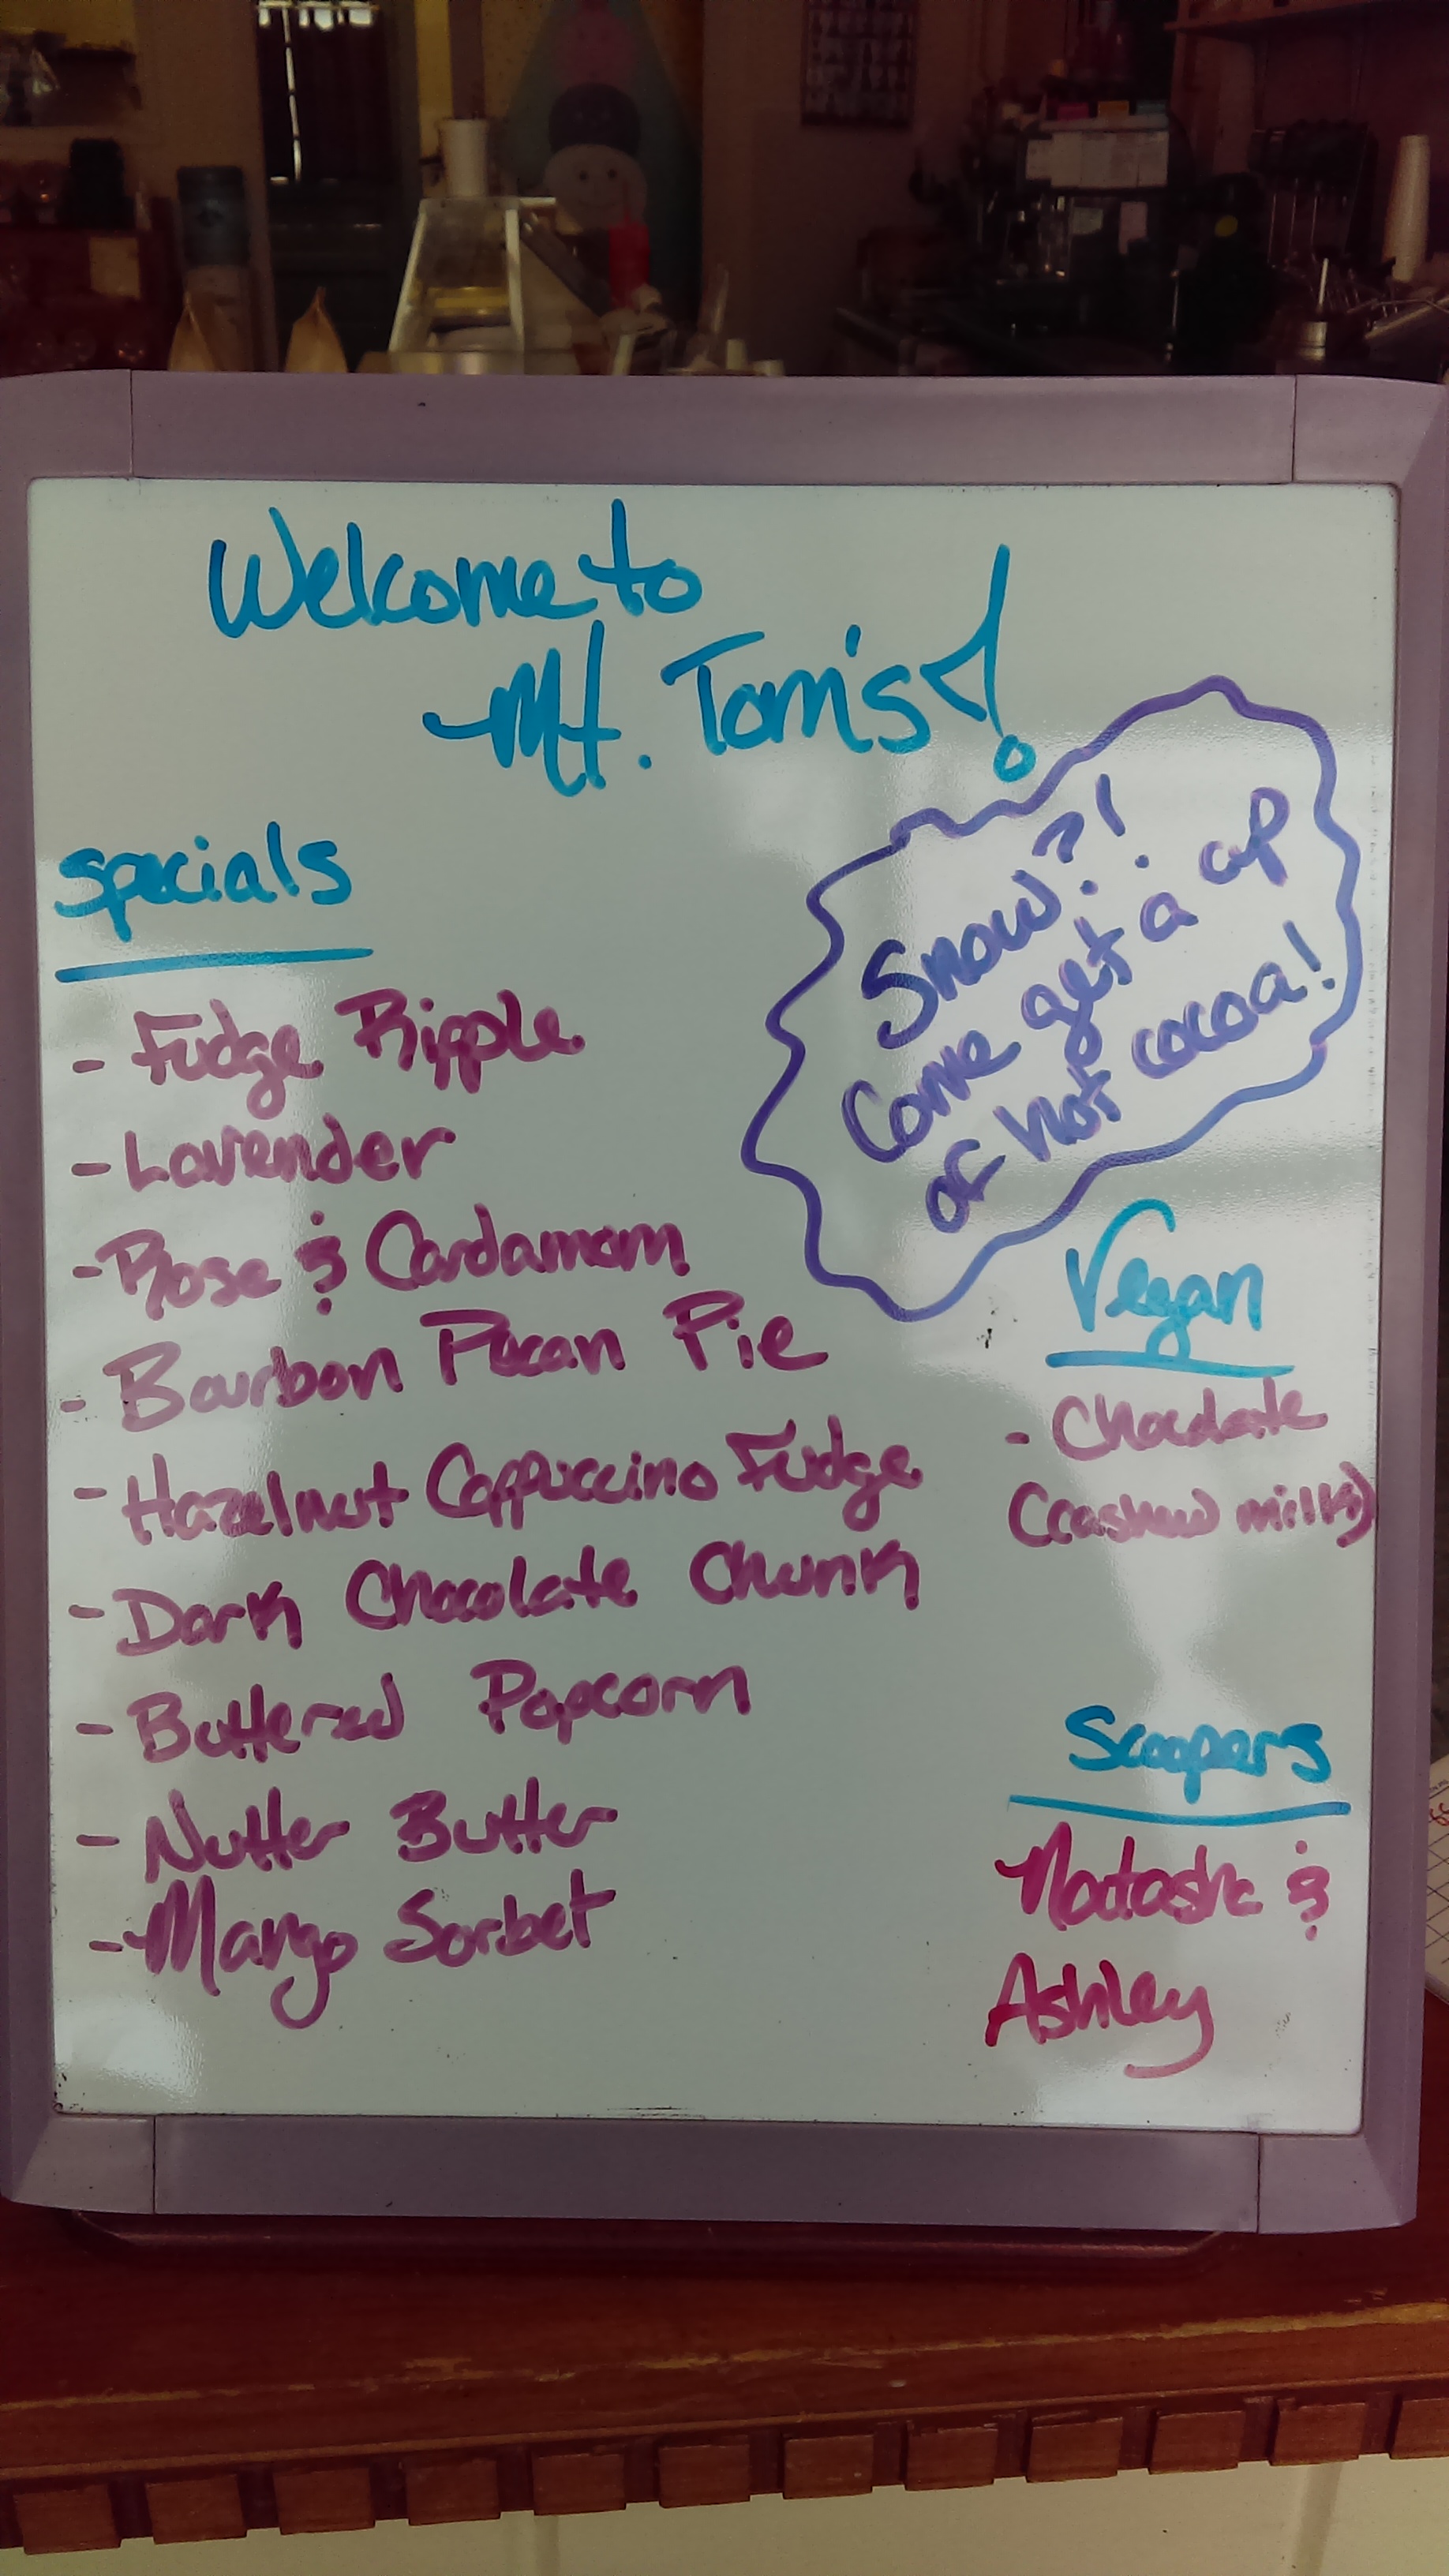 Welcome to
Mt. Tom's!
Snow?!
Come get a cup
of hot cocoa!
Specials
- Fudge Ripple
- Lavender
- Rose & Cardamom
- Bourbon Pecan Pie
- Hazelnut Cappuccino Fudge
- Dark Chocolate Chunk
- Buttered Popcorn
- Nutter Butter
- Mango Sorbet
Vegan
- Chocolate
(cashew milk)
Scoopers
Natasha &
Ashley